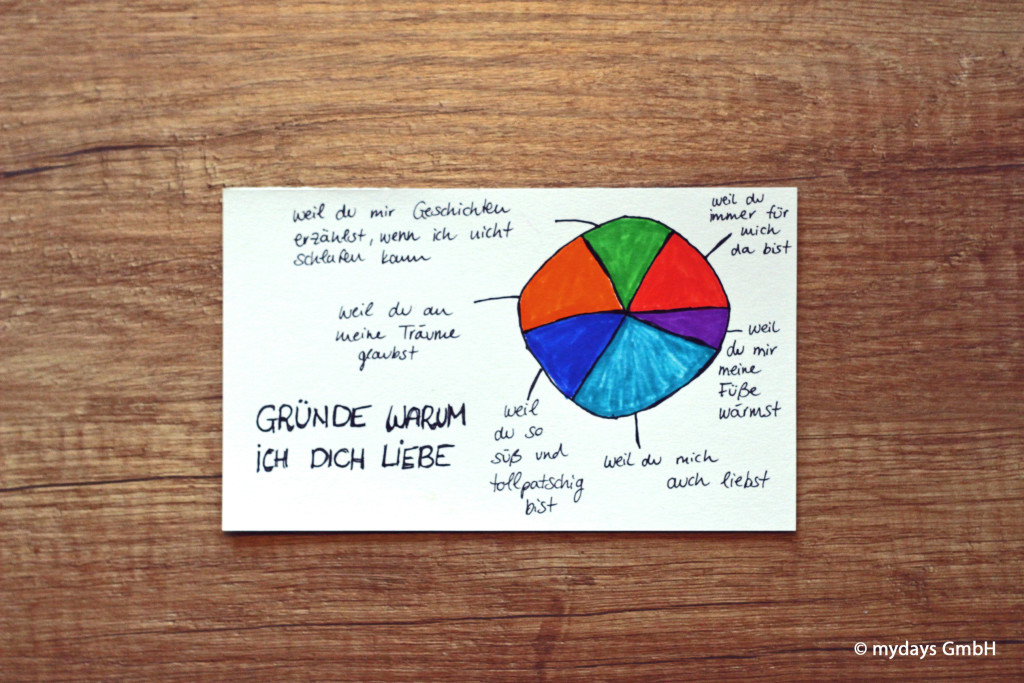 weil du mir Geschichten
erzählst, wenn ich nicht
schlafen kann
weil du
immer für
mich
da bist
weil du an
meine Träume
glaubst
weil
du mir
meine
Füße
wärmst
GRÜNDE WARUM
ICH DICH LIEBE
weil
du so
süß und
tollpatschig
bist
weil du mich
auch liebst
© mydays GmbH